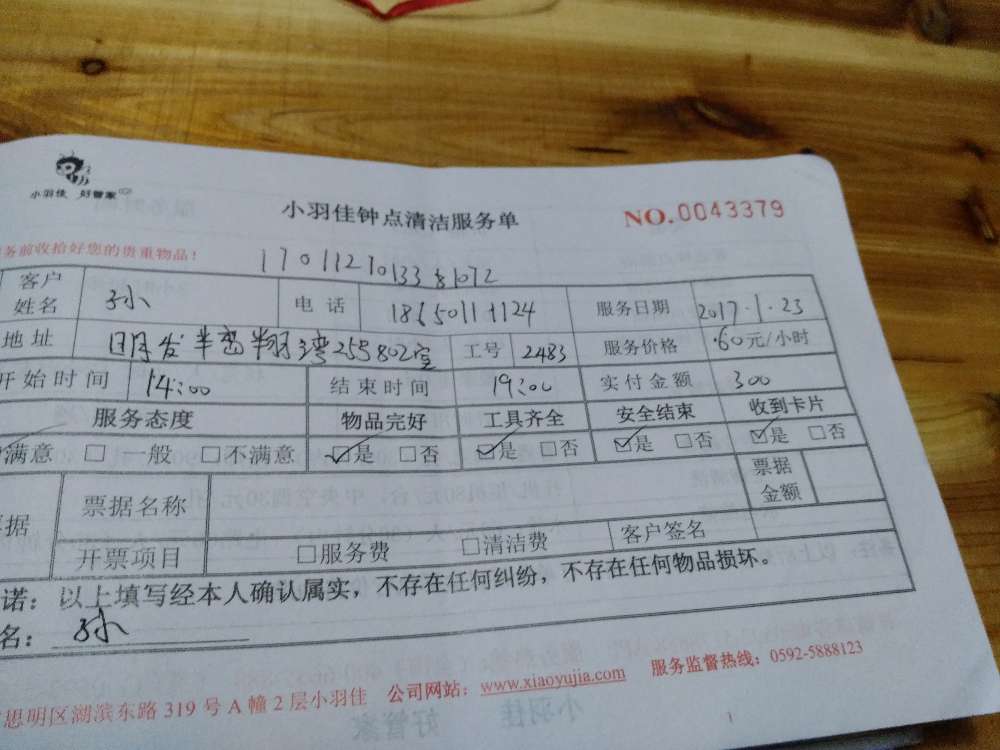 小羽佳 好管家
小羽佳钟点清洁服务单
NO.0043379
务前收拾好您的贵重物品!
客户姓名 孙 电话 服务日期 2017.1.23
地址 255 802室 工号 2483 服务价格 60元/小时
开始时间 14:00 结束时间 19:00 实付金额 300
服务态度 物品完好 工具齐全 安全结束 收到卡片
满意 □ 一般 □不满意 ☑是 □否 ☑是 □否 ☑是 □否 ☑是 □否
据 票据名称 票据金额
开票项目 □服务费 □清洁费 客户签名
诺:以上填写经本人确认属实,不存在任何纠纷,不存在任何物品损坏。
名: 孙
思明区湖滨东路 319 号 A 幢 2 层小羽佳 公司网站:www.xiaoyujia.com 服务监督热线:0592-5888123